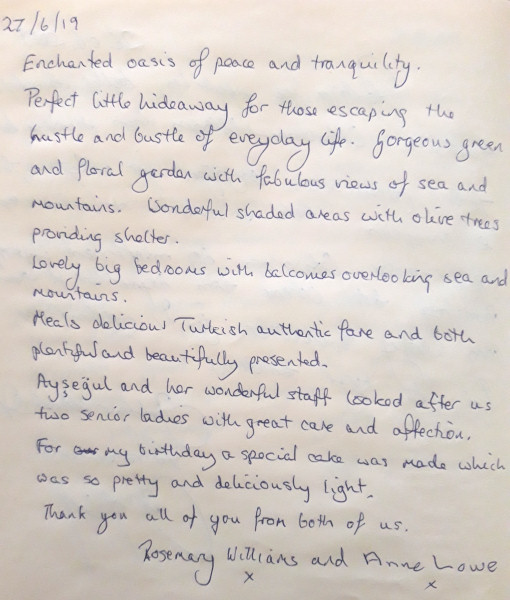 27/6/19
Enchanted oasis of peace and tranquility.
Perfect little hideaway for those escaping the
hustle and bustle of everyday life. Gorgeous green
and floral garden with fabulous views of sea and
mountains. Wonderful shaded areas with olive trees
providing shelter.
Lovely big bedrooms with balconies overlooking sea and
mountains.
Meals delicious Turkish authentic fare and both
plentiful and beautifully presented.
Ayşegül and her wonderful staff looked after us
two senior ladies with great care and affection.
For my birthday a special cake was made which
was so pretty and deliciously light.
Thank you all of you from both of us.
Rosemary Williams and Anne Lowe
x x